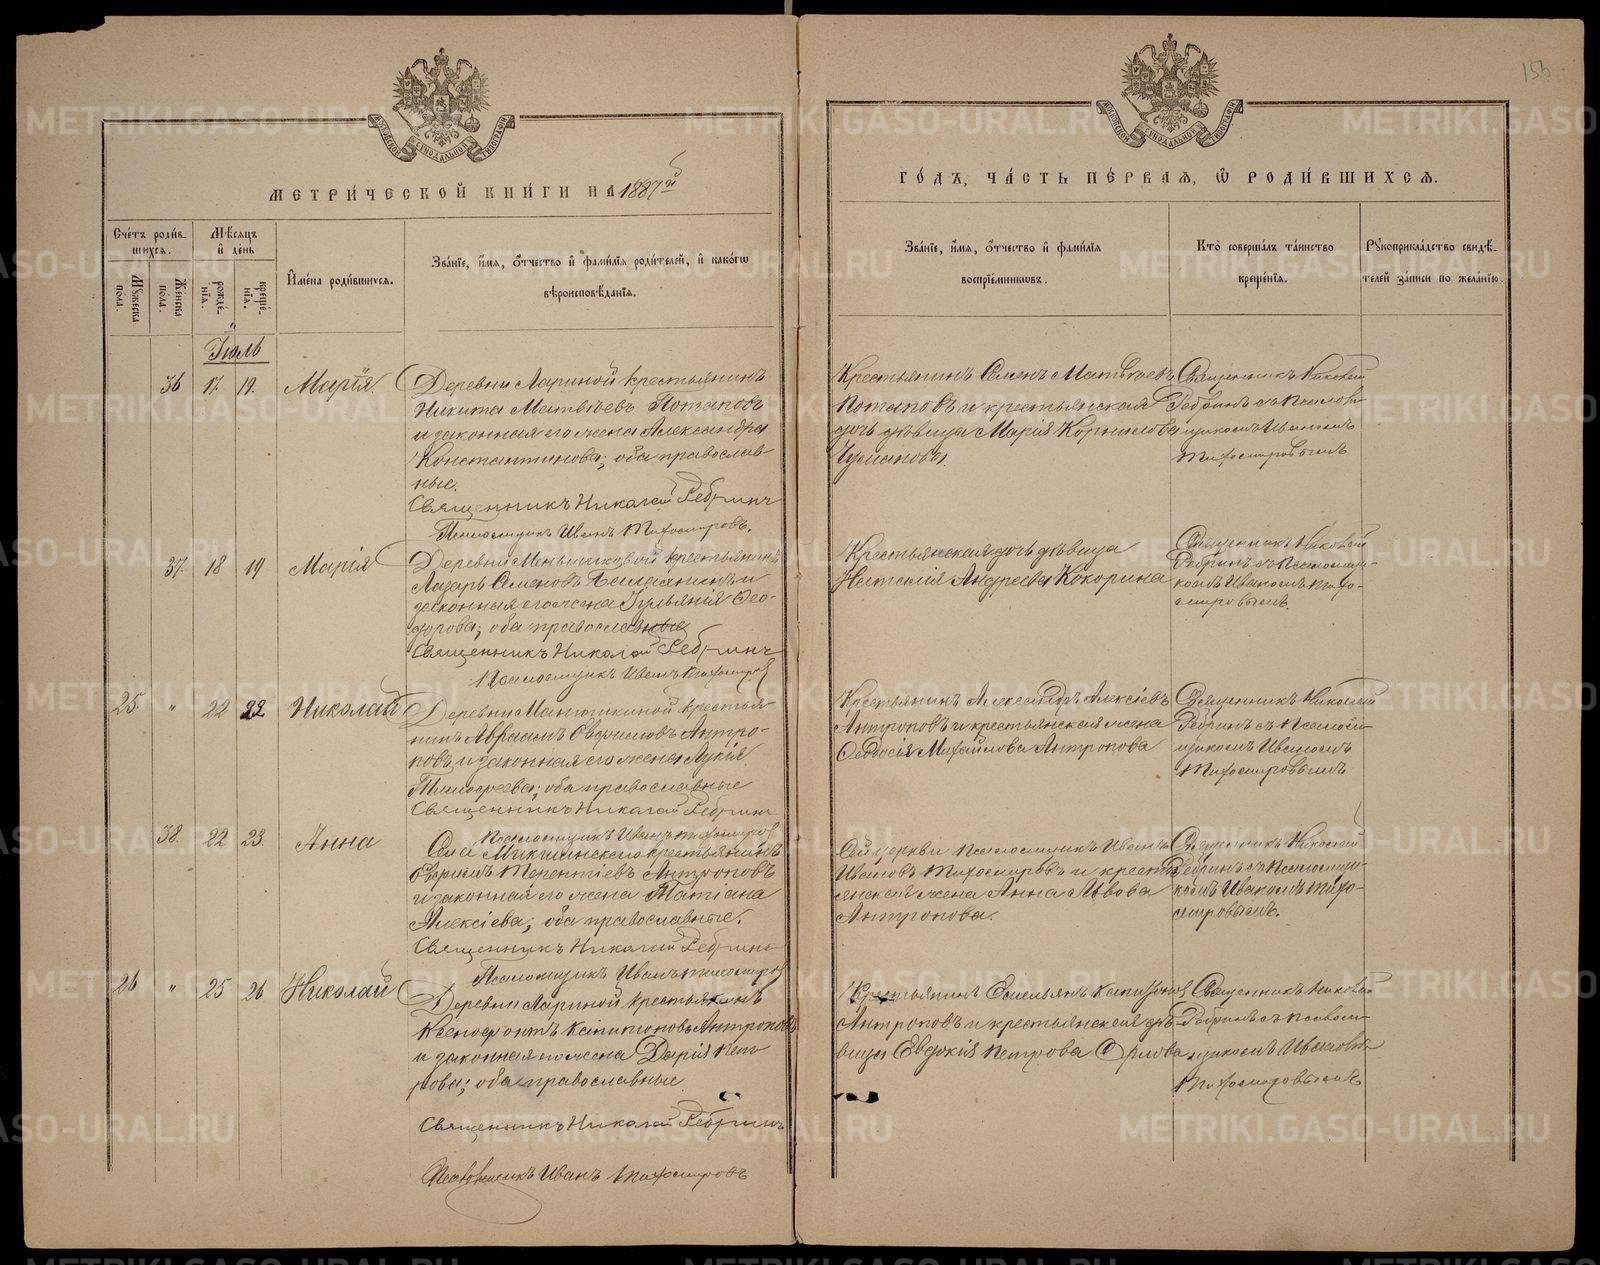 155
МОСКОВСКОЙ СѴНОДАЛЬНОЙ ТИПОГРАФІИ
МОСКОВСКОЙ СѴНОДАЛЬНОЙ ТИПОГРАФІИ
МЕТРИ́ЧЕСКОЙ КНИ́ГИ НА 1887й
ГО́ДЪ, ЧА́СТЬ ПЕ́РВАЯ, Ѿ РОДИ́ВШИХСЯ.
Сче́тъ роди́вшихся.
Мꙋ́жеска пола.
Же́нска пола.
Мѣ́сяцъ и де́нь
рожде́нїя.
креще́нїя.
И҆мена̀ роди́вшихся.
Зва́нїе, и҆́мя, ѻ҆́тчество и҆ фами́лїя роди́телей, и҆ како́гѡ
вѣроисповѣ́данїя.
Зва́нїе, и҆́мя, ѻ҆́тчество и҆ фами́лїя
воспрїе́мниковъ.
Кто̀ соверша́лъ та́инство
креще́нїя.
Рꙋкоприкла́дство свидѣ́телей за́писи по жела́нїю.
Іюль
36 17. 19. Марія
Деревни Лариной крестьянинъ
Никита Матвѣевъ Потаповъ
и законная его жена Александра
Константинова; оба православ-
ные.
Священникъ Николай Ребринъ
Псаломщикъ Иванъ Тихомировъ.
Крестьянинъ Семенъ Матвѣевъ
Потаповъ и крестьянская
дочь дѣвица Марія Корнилова
Священникъ Николай
Ребринъ съ псаломщикомъ Иваномъ
Тихомировымъ
37. 18 19 Марія
Деревни Меньшиковой крестьянинъ
Лазарь Семеновъ и
законная его жена Іульянія Ѳео-
дорова; оба православные
Священникъ Николай Ребринъ
Псаломщикъ Иванъ Тихомировъ
Крестьянская дочь дѣвица
Наталія Андреева Кокорина
Священникъ Николай
Ребринъ съ Псаломщи-
комъ Иваномъ Тихо-
мировымъ.
25. " 22 22 Николай
Деревни крестья-
нинъ Авраамъ Антро-
повъ и законная его жена Лукія
Тимофеева; оба православные
Священникъ Николай Ребринъ
Псаломщикъ Иванъ Тихомировъ
Крестьянинъ Александръ Алексіевъ
Антроповъ и крестьянская жена
Ѳеодосія Михайлова Антропова
Священникъ Николай
Ребринъ съ Псалом-
щикомъ Иваномъ
Тихомировымъ
38. 22 23. Анна
Села Микшинскаго крестьянинъ
Терентіевъ Антроповъ
и законная его жена Татіана
Алексіева; оба православные.
Священникъ Николай Ребринъ
Псаломщикъ Иванъ Тихомировъ
Сей церкви псаломщикъ Иванъ
Ивановъ Тихомировъ и кресть-
янская жена Анна Львова
Антропова.
Священникъ Николай
Ребринъ съ Псаломщи-
комъ Иваномъ Тихо-
мировымъ.
26 " 25 26 Николай
Деревни Лариной крестьянинъ
Ксенофонтъ Капитоновъ Антроповъ
и законная его жена Дарія Пет-
рова; оба православные.
Священникъ Николай Ребринъ
Псаломщикъ Иванъ Тихомировъ
Крестьянинъ Емельянъ Капитоновъ
Антроповъ и крестьянская дѣ-
вица Евдокія Петрова Орлова
Священникъ Николай
Ребринъ съ псалом-
щикомъ Иваномъ
Тихомировымъ
METRIKI.GASO-URAL.RU